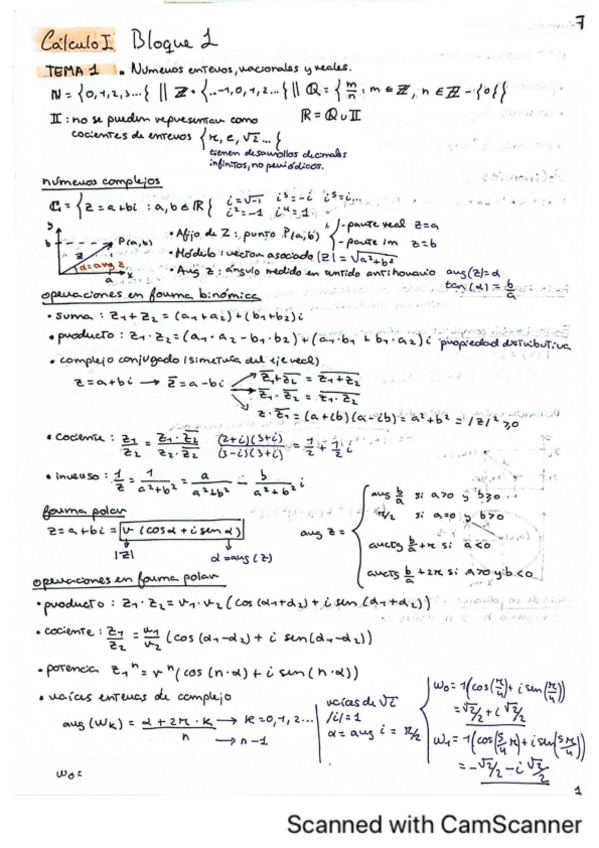 7
Cálculo I Bloque 1
TEMA 1 . Números enteros, racionales y reales.
N = {0,1,2,3...} || Z = {..-1,0,1,2...} || Q = { m/n ; m ∈ Z, n ∈ Z - {0} }
II : no se pueden representar como R = Q ∪ II
cocientes de enteros { π, e, √2 ... }
tienen desarrollos decimales
infinitos, no periódicos.
números complejos
C = { z = a+bi : a, b ∈ R } i = √-1 i³ = -i i⁵ = i...
i² = -1 i⁴ = 1
y b P(a,b) z α = arg z a x
• Afijo de Z : punto P(a,b) - parte real z = a
- parte im z = b
• Módulo : vector asociado |z| = √a²+b²
• Arg z : ángulo medido en sentido antihorario arg(z) = α
tan(α) = b/a
operaciones en forma binómica
• suma : z1 + z2 = (a1 + a2) + (b1 + b2) i
• producto : z1 · z2 = (a1 · a2 - b1 · b2) + (a1 · b2 + b1 · a2) i propiedad distributiva
• complejo conjugado (simetría del eje real)
z = a + bi → z̅ = a - bi
z · z̅ = (a+ib)(a-ib) = a² + b² = |z|² ≥ 0
• cociente : z1/z2 = z1 · z̅2 / z2 · z̅2 (2+i)(3+i) / (3-i)(3+i) = 1/2 + 1/2 i
• inverso : 1/z = a/a²+b² - b/a²+b² i
forma polar
z = a + bi = r (cos α + i sen α)
|z| α = arg(z)
arg z =
arg b/a si a>0 y b≥0
π/2 si a=0 y b>0
arctg b/a + π si a<0
arctg b/a + 2π si a>0 y b<0
operaciones en forma polar
• producto : z1 · z2 = r1 · r2 (cos (α1+α2) + i sen (α1+α2))
• cociente : z1/z2 = r1/r2 (cos (α1-α2) + i sen (α1-α2))
• potencia z1ⁿ = rⁿ (cos (n·α) + i sen (n·α))
• raíces enteras de complejo
arg (Wk) = α + 2π · k / n → k = 0,1,2...
→ n-1
raíces de √i
|i| = 1
α = arg i = π/2
W0 = 1 (cos(π/4) + i sen(π/4))
= √2/2 + i √2/2
W1 = 1 (cos(5/4 π) + i sen(5π/4))
= -√2/2 - i √2/2
W0 =
1
Scanned with CamScanner